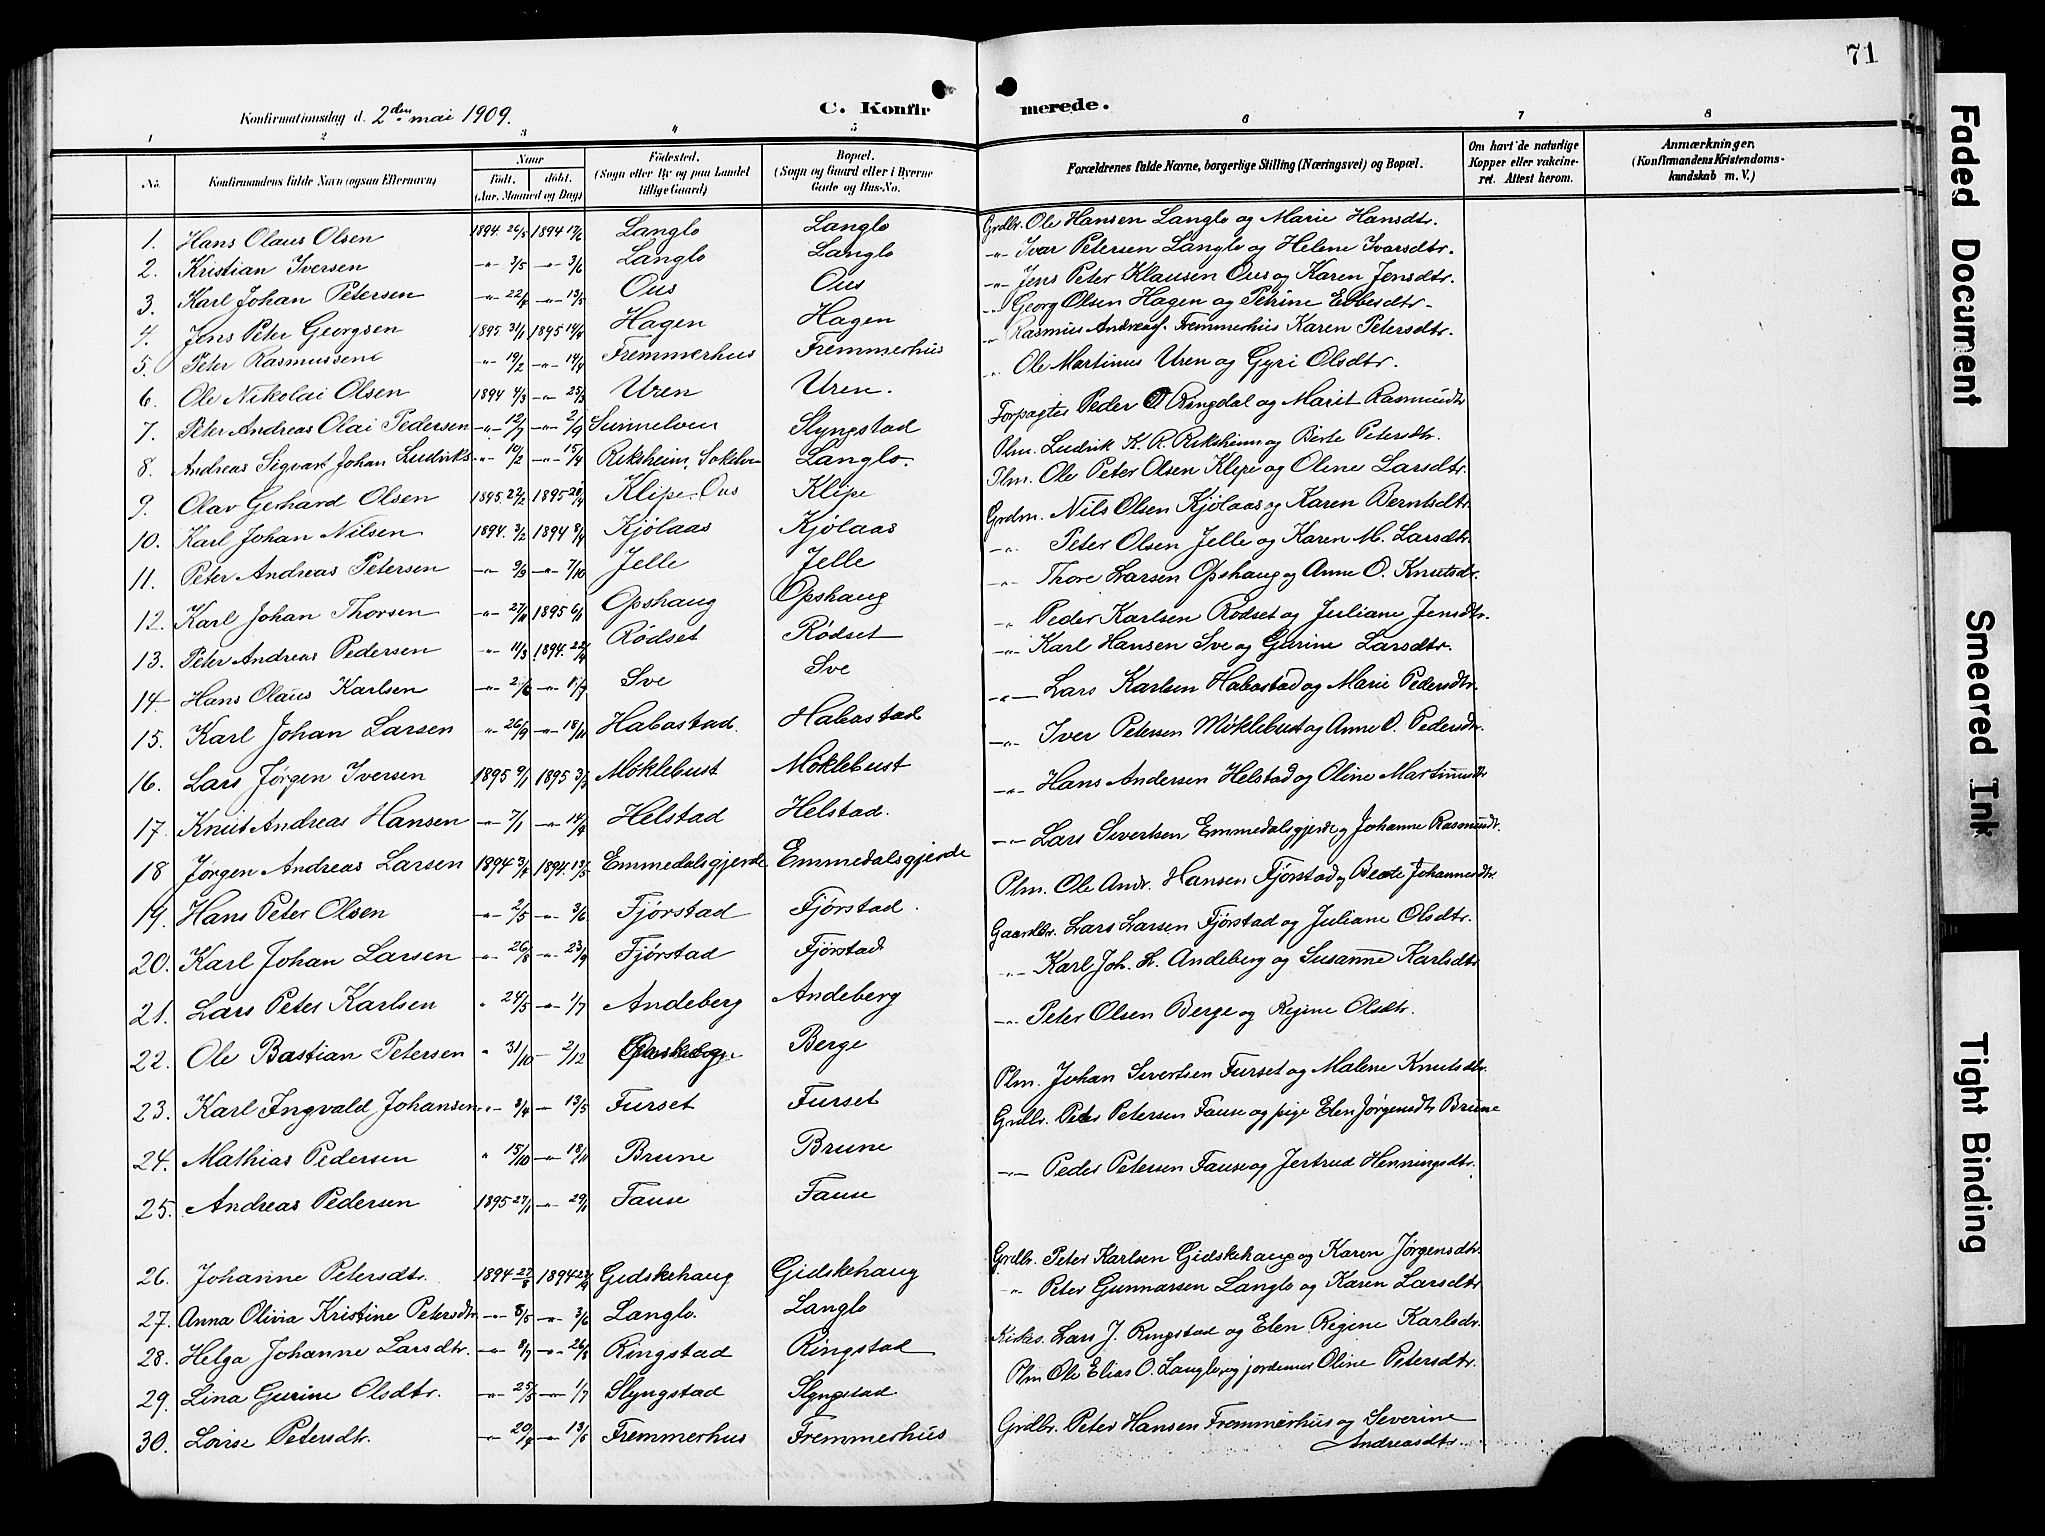 71
Konfirmationsdag d. 2den mai 1909.
C. Konfirmerede.
1 2 3 4 5 6 7 8
No. Konfirmandens fulde Navn (ogsaa Efternavn) Naar Født. døbt. (Aar, Maaned og Dag) Fødested. (Sogn eller By og paa Landet tillige Gaard) Bopæl. (Sogn og Gaard eller i Byerne Gade og Hus-No. Forældrenes fulde Navne, borgerlige Stilling (Næringsvei) og Bopæl. Om havt de naturlige Kopper eller vakcineret. Attest herom. Anmærkninger. (Konfirmandens Kristendomskundskab m. V.)
1. Hans Olaus Olsen 1894 26/5 1894 17/6 Langlo Langlo Grdbr. Ole Hansen Langlo og Marie Hansdtr.
2. Kristian Iversen -"- 3/5 -"- 3/6 Langlo Langlo -"- Ivar Petersen Langlo og Helene Ivarsdtr.
3. Karl Johan Petersen -"- 22/4 -"- 13/5 Ous Ous -"- Jens Peter Klausen Ous og Karen Jensdtr.
4. Jens Peter Georgsen 1895 31/1 1895 14/4 Hagen Hagen -"- Georg Olsen Hagen og Petrine Ebbesdtr.
5. Peter Rasmussen -"- 19/2 -"- 14/4 Fremmerhus Fremmerhus -"- Rasmus Andreas. Fremmerhus Karen Petersdtr.
6. Ole Nikolai Olsen 1894 4/3 -"- 25/3 Uren Uren. -"- Ole Martinus Uren og Gyri Olsdtr.
7. Peter Andreas Olai Pedersen -"- 12/7 -"- 2/9 Sunnelven Slyngstad Forpagter Peder O Ringdal og Marit Rasmusdtr
8. Andreas Sigvart Johan Ludviks -"- 10/2 -"- 15/4 Riksheim Søkelven Langlo. Plm. Ludvik K. R. Riksheim og Birte Petersdtr.
9. Olav Gerhard Olsen 1895 22/2 1895 28/4 Klipe-Ous Klipe Plm. Ole Peter Olsen Klipe og Oline Larsdtr.
10. Karl Johan Nilsen 1894 3/2 1894 8/4 Kjølaas Kjølaas Grdm. Nils Olsen Kjølaas og Karen Berntsdtr.
11. Peter Andreas Petersen -"- 9/9 -"- 7/10 Jelle Jelle -"- Peter Olsen Jelle og Karen M. Larsdtr.
12. Karl Johan Thorsen -"- 27/11 1895 6/1 Opshaug Opshaug -"- Thore Larsen Opshaug og Anne O. Knutsdr.
13. Peter Andreas Pedersen -"- 11/3 1894. 22/4 Rødset Rødset -"- Peder Karlsen Rødset og Juliane Jensdtr.
14. Hans Olaus Karlsen -"- 2/6 -"- 8/7 Sve Sve -"- Karl Hansen Sve og Gurine Larsdtr.
15. Karl Johan Larsen -"- 26/9 -"- 18/11 Habostad. Habostad -"- Lars Karlsen Habostad og Marie Pedersdtr.
16. Lars Jørgen Iversen 1895 9/1 1895 3/3 Møklebust Møklebust -"- Iver Petersen Møklebust og Anne O. Pedersdtr.
17. Knut Andreas Hansen -"- 7/1 -"- 14/4 Helstad Helstad. -"- Hans Andersen Helstad og Oline Martinusdtr
18 Jørgen Andreas Larsen 1894 3/4 1894. 13/5 Emmedalsgjerde Emmedalsgjerde -"- Lars Sivertsen Emmedalsgjerde og Johanne Rasmusdtr.
19. Hans Peter Olsen -"- 2/5 -"- 3/6 Fjørstad Fjørstad. Plm. Ole Andr. Hansen Fjørstad og Beate Johannesdtr.
20. Karl Johan Larsen -"- 26/8 -"- 23/9 Fjørstad Fjørstad Gaardbr. Lars Larsen Fjørstad og Juliane Olsdtr.
21. Lars Peter Karlsen " 24/5 -"- 1/7 Andeberg Andeberg -"- Karl Joh. L. Andeberg og Susanne Karlsdtr
22. Ole Bastian Petersen " 31/10 - 2/12 Berge -"- Peter Olsen Berge og Regine Olsdtr.
23. Karl Ingvald Johansen -"- 3/4 - 13/5 Furset Furset Plm. Johan Sivertsen Furset og Malene Knutsdtr.
24. Mathias Pedersen " 15/10 -"- 18/11 Brune Brune Grdbr. Peter Petersen Fause og pige Elen Jørgensdtr Brune
25. Andreas Pedersen 1895 27/1 -"- Fause Fause -"- Peder Petersen Fause og Jertrud Henningsdtr.
26. Johanne Petersdtr. 1894 27/8 1894 Gidskehaug Gidskehaug Grdbr. Peter Karlsen Gidskehaug og Karen Jørgensdtr.
27. Anna Olivia Kristine Petersdtr -"- 8/5 -"- 3/6 Langlo. Langlo " Peter Gunnarsen Langlo og Karen Larsdtr
28. Helga Johanne Larsdtr. -"- 8/7 -"- 26/8 Ringstad Ringstad Kirkes. Lars J. Ringstad og Elen Regine Karlsdtr.
29. Lina Gurine Olsdtr. -"- 25/5 -"- 1/7 Slyngstad Slyngstad. Plm Ole Elias O. Langlo og jordemor Oline Petersdtr.
30. Lovise Petersdtr. -"- 20/4 -"- 13/5 Fremmerhus Fremmerhus Grdbr. Peter Hansen Fremmerhus og Severine
Andreasdtr.
Faded Document
Smeared Ink
Tight Binding